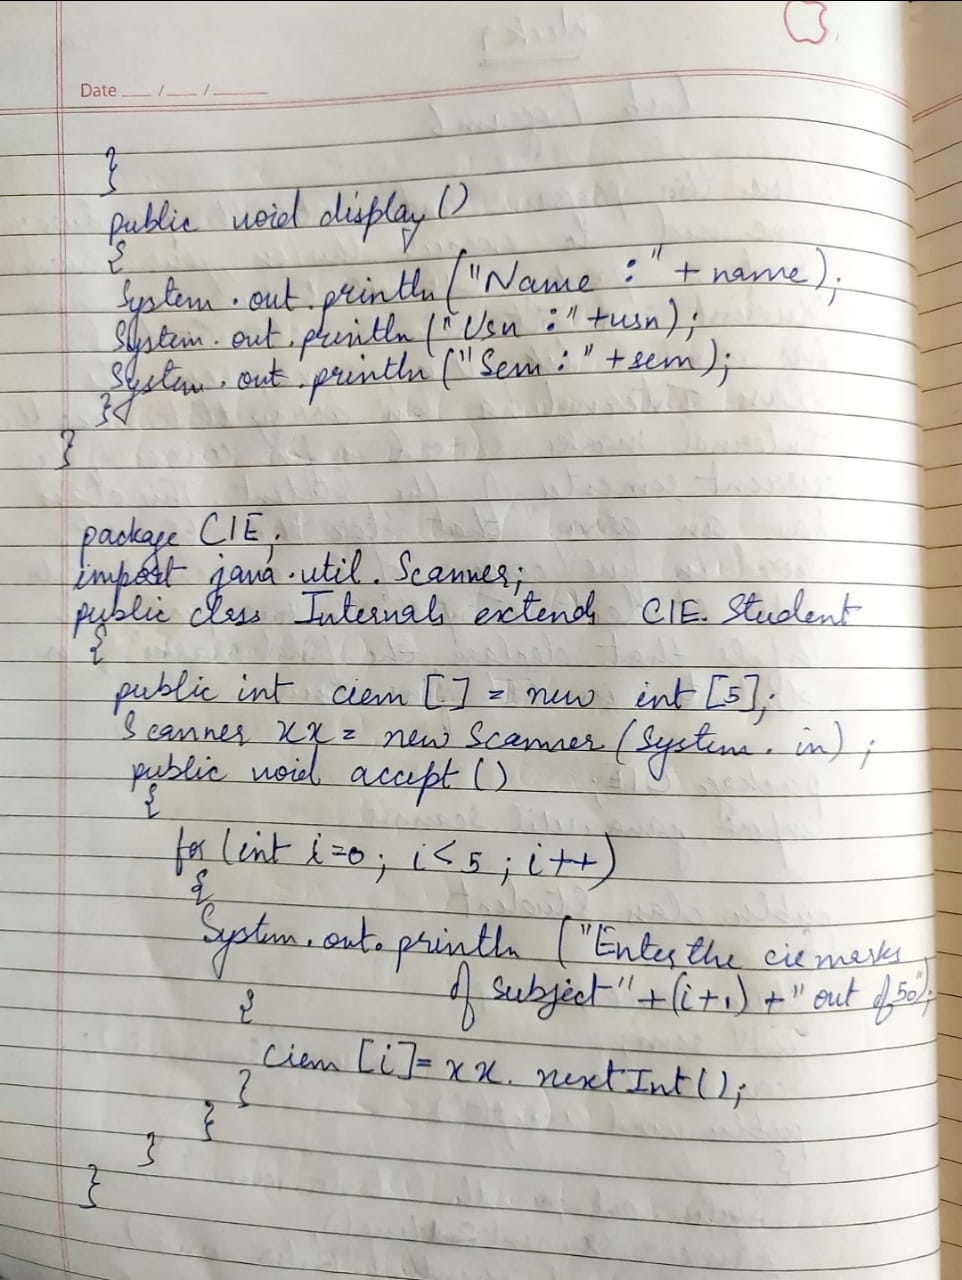 Date __/__/____
}
public void display ()
{
System.out.println ("Name :" + name);
System.out.println ("Usn :" +usn);
System.out.println ("Sem :" +sem);
}
}
package CIE;
import java.util.Scanner;
public class Internals extends CIE.Student
{
public int ciem [] = new int [5];
Scanner xx = new Scanner (System.in);
public void accept ()
{
for (int i=0; i<5; i++)
{
System.out.println ("Enter the cie marks
of subject" +(i+1) +" out of 50");
{
ciem [i]= xx.nextInt();
}
}
}
}